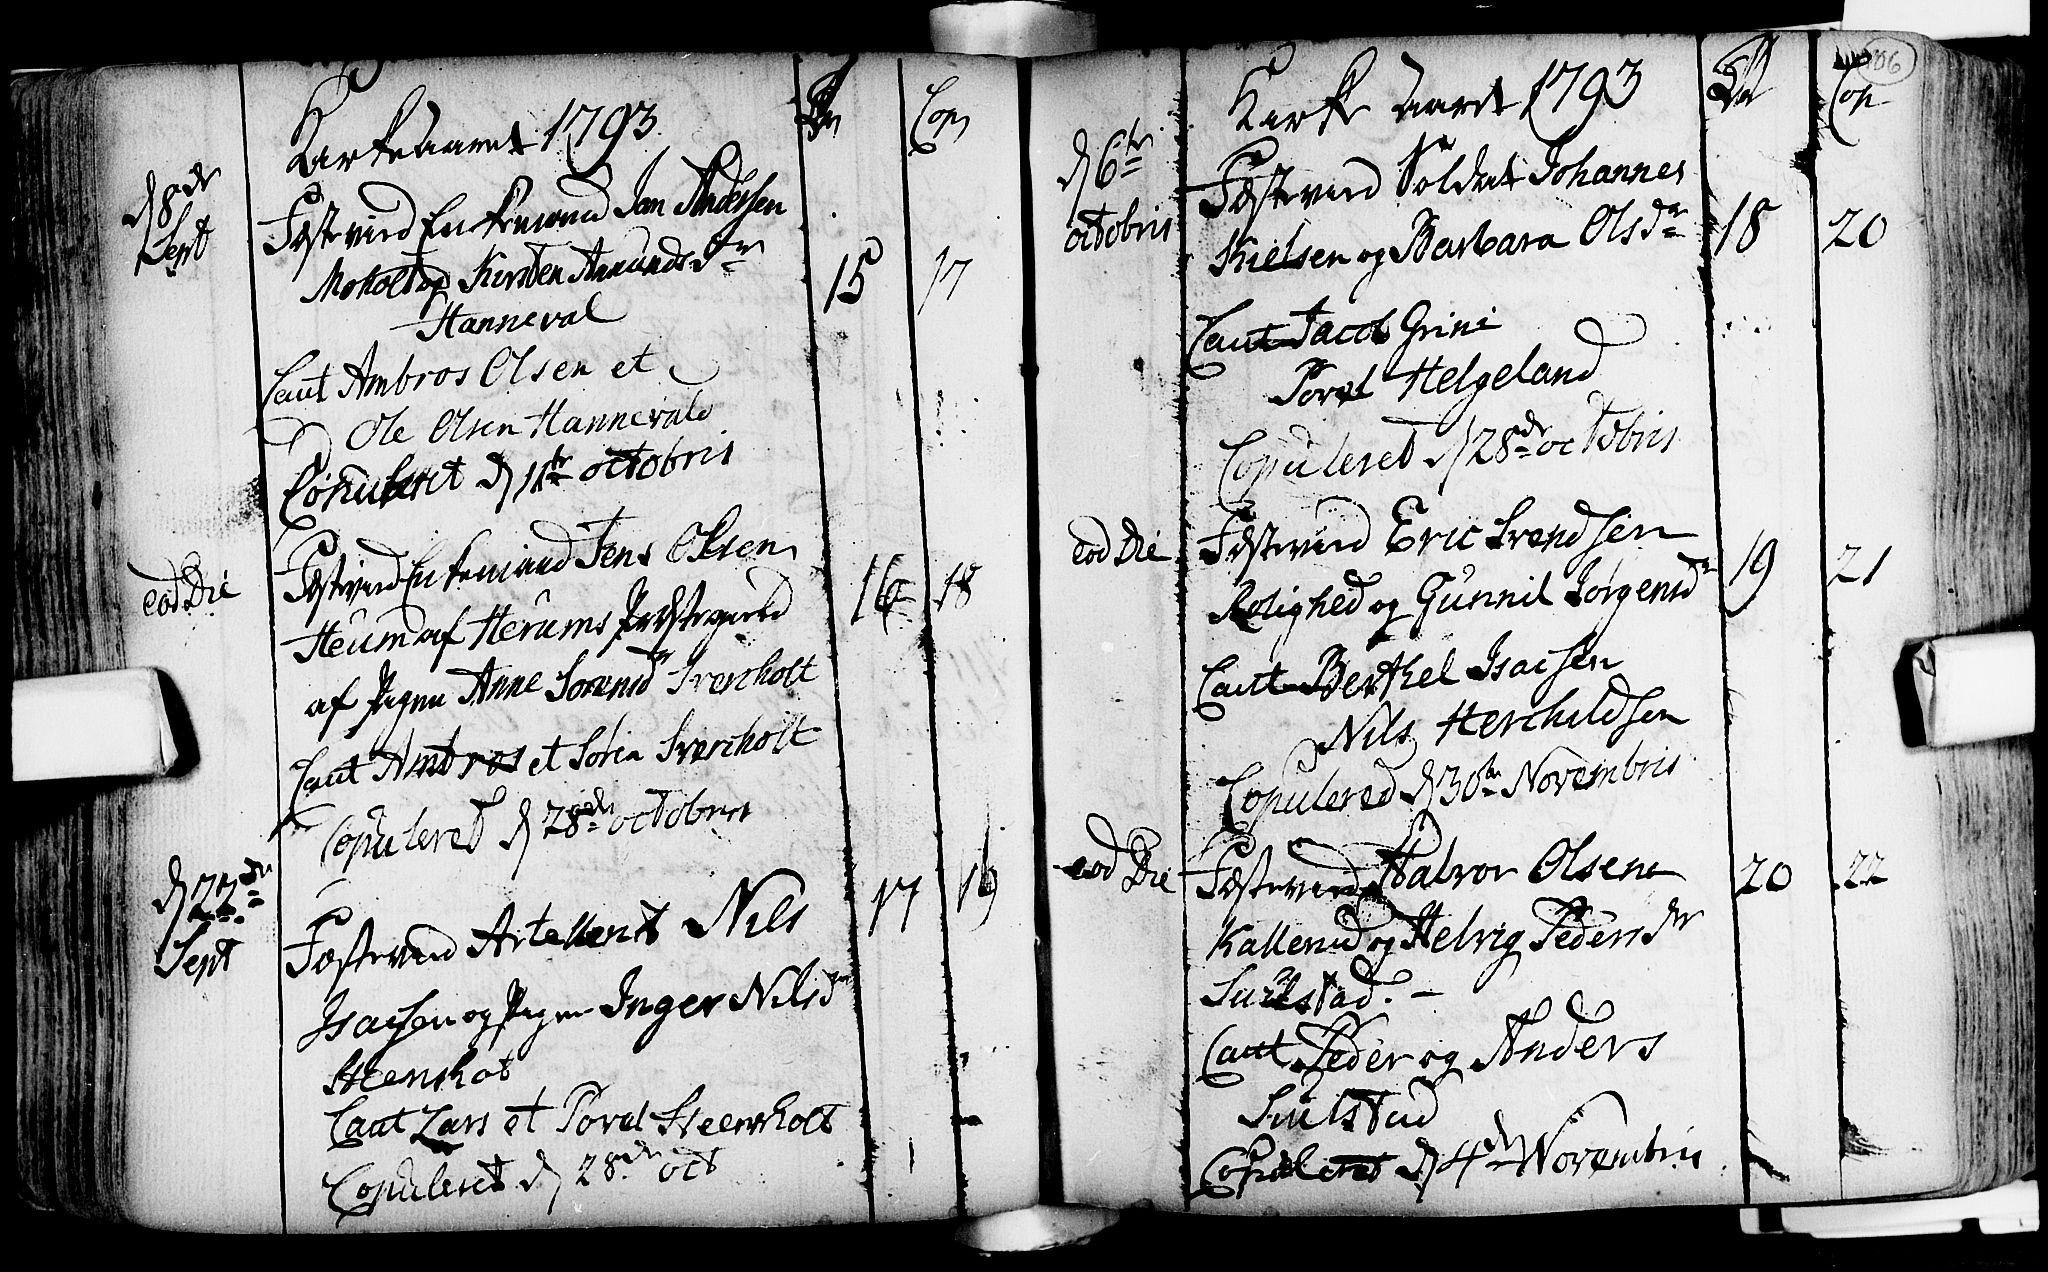 Kirke Aaret 1793
Cop
d 8de
Sept
Fæstevird Enkemand Jan Andersen
Moholt og Kirsten Amunds Dr
Hanneval
15 17
Caut Ambros Olsen et
Ole Olsen Hannevald
Copuleret d 11te octobris
eod Die
Fæstevird Enkemand Jens Olsen
Heum af Herums Præstegield
16 18
af Pigen Anne Sorensd Svercholt
Caut Ambros et Sören Svercholt
Copuleret d 28de octobris
d 22de
Sept
Fæstevird Artellerist Nils
17 19
Isacsen og Pigen Inger Nilsdr
Steensholt
Caut Lars et Povel Steensholt
Copuleret d 28de oct
106
Kirke Aaret 1793
Cop
d 6te
octobris
Fæstevird Soldat Johannes
Kielsen og Barbara Olsdr
18 20
Caut Jacob Grini
Povel Helgeland
Copuleret d 28de octobris
eod Die
Fæstevird Eric Svendsen
Rolighed og Gunnil Jörgensdr
19 21
Caut Berthel Isacsen
Nils Herchildsen
Copulered d 30te Novembris
eod Die
Fæstevird Halvor Olsen
20 22
Kallerud og Helvig Pedersdr
Sulstad. -
Caut Peder og Anders
Sulstad
Copuleret d 4de Novembris